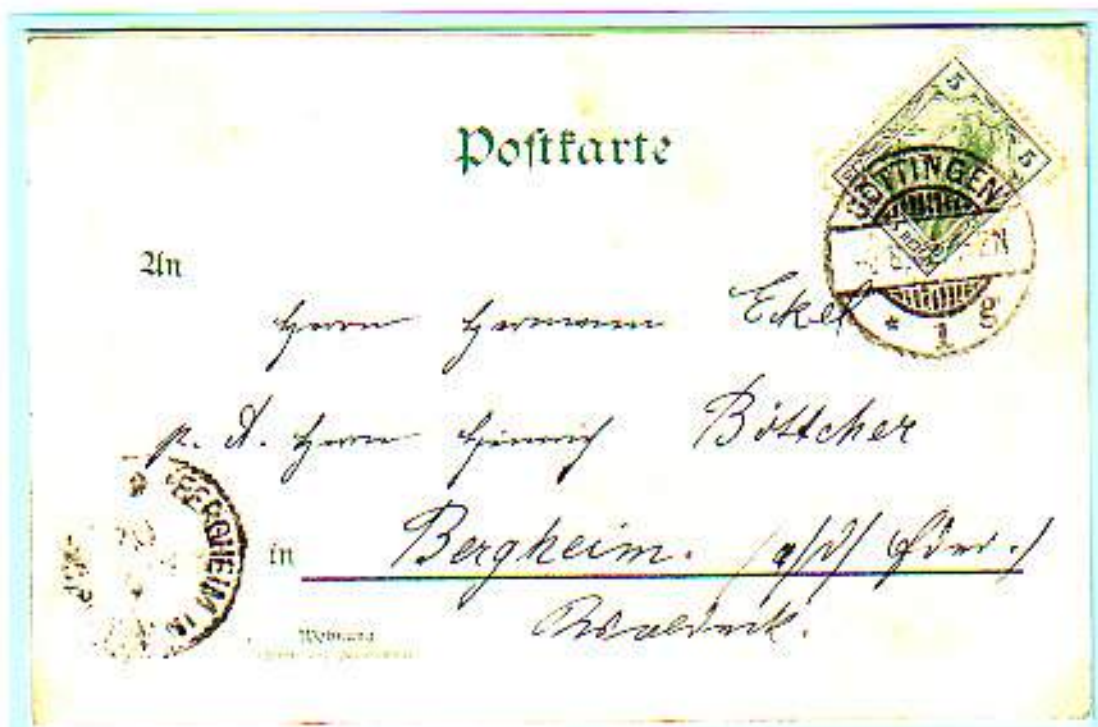 Postkarte
5
5
GÖTTINGEN
* 1 g
An
Herrn Hermann Eckel
p. A. Herrn Heinrich Böttcher
in Bergheim. (a/d/ Eder.)
Waldeck.
BERGHEIM
Wohnung